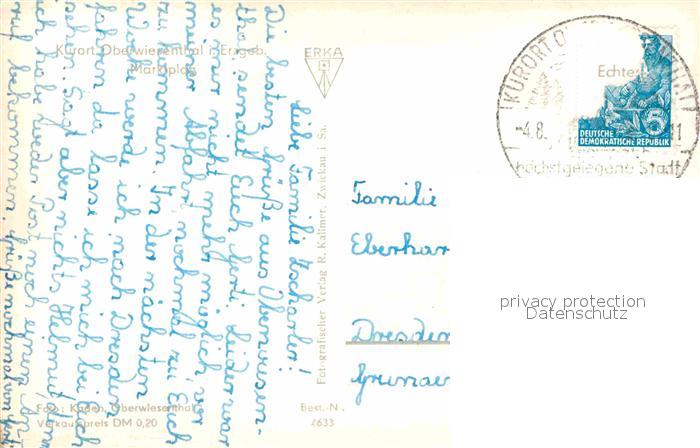 Kurort Oberwiesenthal i. Erzgeb.
Marktplatz
ERKA
Liebe Familie
Die besten Grüße aus Oberwiesen-
thal sendet Euch Gerti. Leider war
es mir nicht mehr möglich vor
meiner Abfahrt nochmal zu Euch
zu kommen. In der nächsten
Woche werde ich nach Dresden
fahren da lasse ich mich bei Euch
sehn. Sagt aber nichts Helmut denn
ich habe weder Post noch einen
ruf bekommen. Grüße nochmal von
Fotografischer Verlag R. Kallmer, Zwickau i. Sa.
Foto: Kaden, Oberwiesenthal
Verkaufspreis DM 0,20
Best.-N
4633
KURORT O
-4.8.
11
höchstgelegene Stadt
Echte
5
DEUTSCHE
DEMOKRATISCHE REPUBLIK
Familie
Eberhar
Dresden
Grunaer
privacy protection
Datenschutz